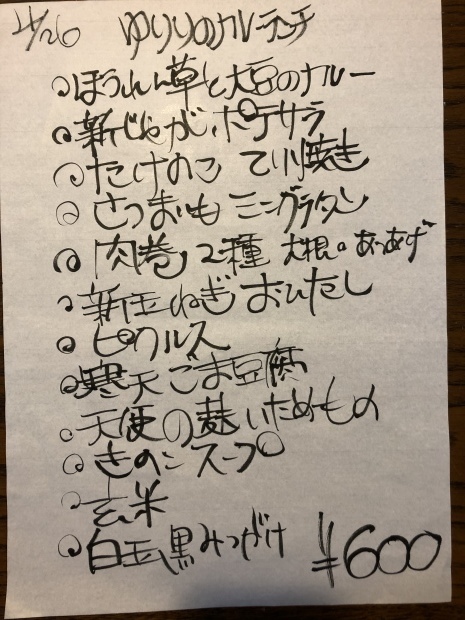 4/26 ゆりりのカレーランチ
ほうれん草と大豆のカレー
新じゃが ポテサラ
たけのこ てり焼き
さつまいも ミニグラタン
肉巻 2種 大根。あつあげ
新玉ねぎ おひたし
ピクルス
寒天 ごま豆腐
天使の麩 いためもの
きのこ スープ
玄米
白玉 黒みつがけ
¥600